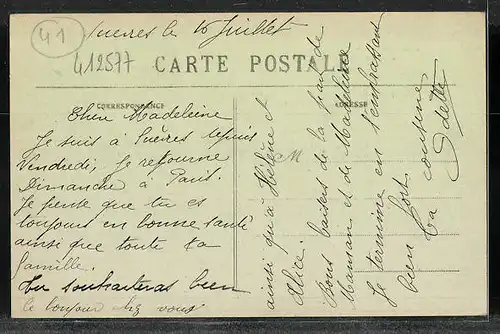 41
Suèvres le 16 Juillet
412577
CARTE POSTALE
CORRESPONDANCE
ADRESSE
Chère Madeleine
Je suis à Suèvres depuis
Vendredi, je retourne
Dimanche à Paris.
Je pense que tu es
toujours en bonne santé
ainsi que toute ta
famille.
Tu souhaiteras bien
le bonjour chez vous
ainsi qu'à Hélène et
Alice.
Bons baisers de la part de
Maman et de Madeleine
Je termine en t'embrassant
bien fort
Ta cousine
Odette
M